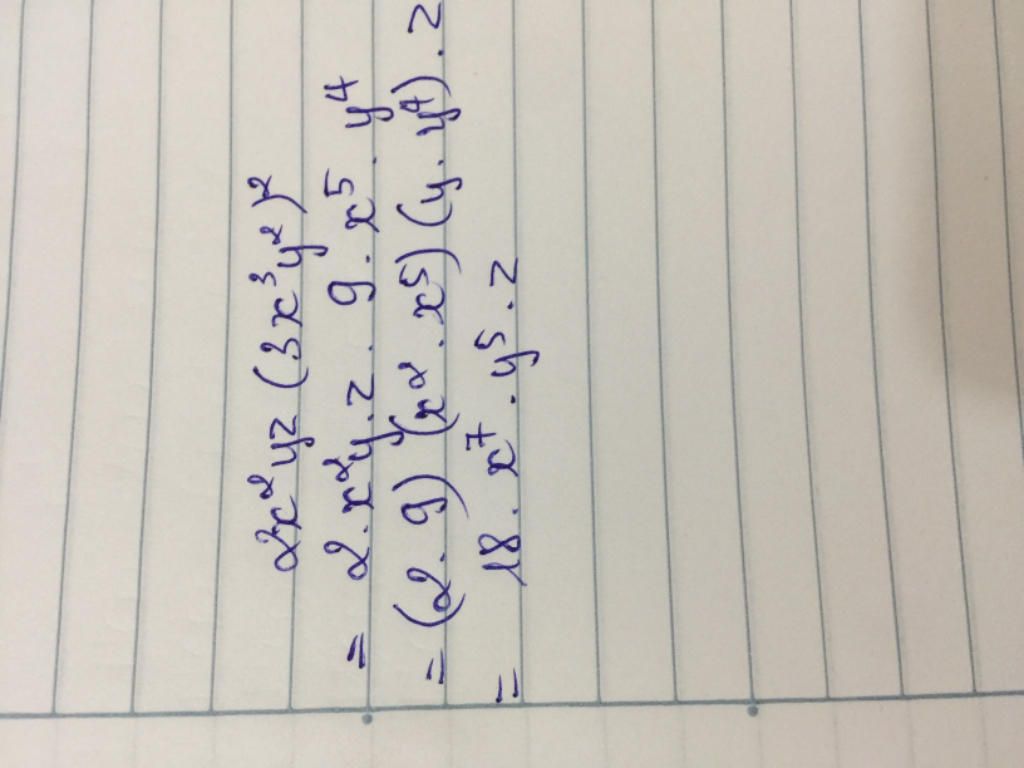 2x²yz (3x³y²)²
= 2 . x²y . z . 9 . x⁵ . y⁴
= (2 . 9) (x² . x⁵) (y . y⁴) . z
= 18 . x⁷ . y⁵ . z